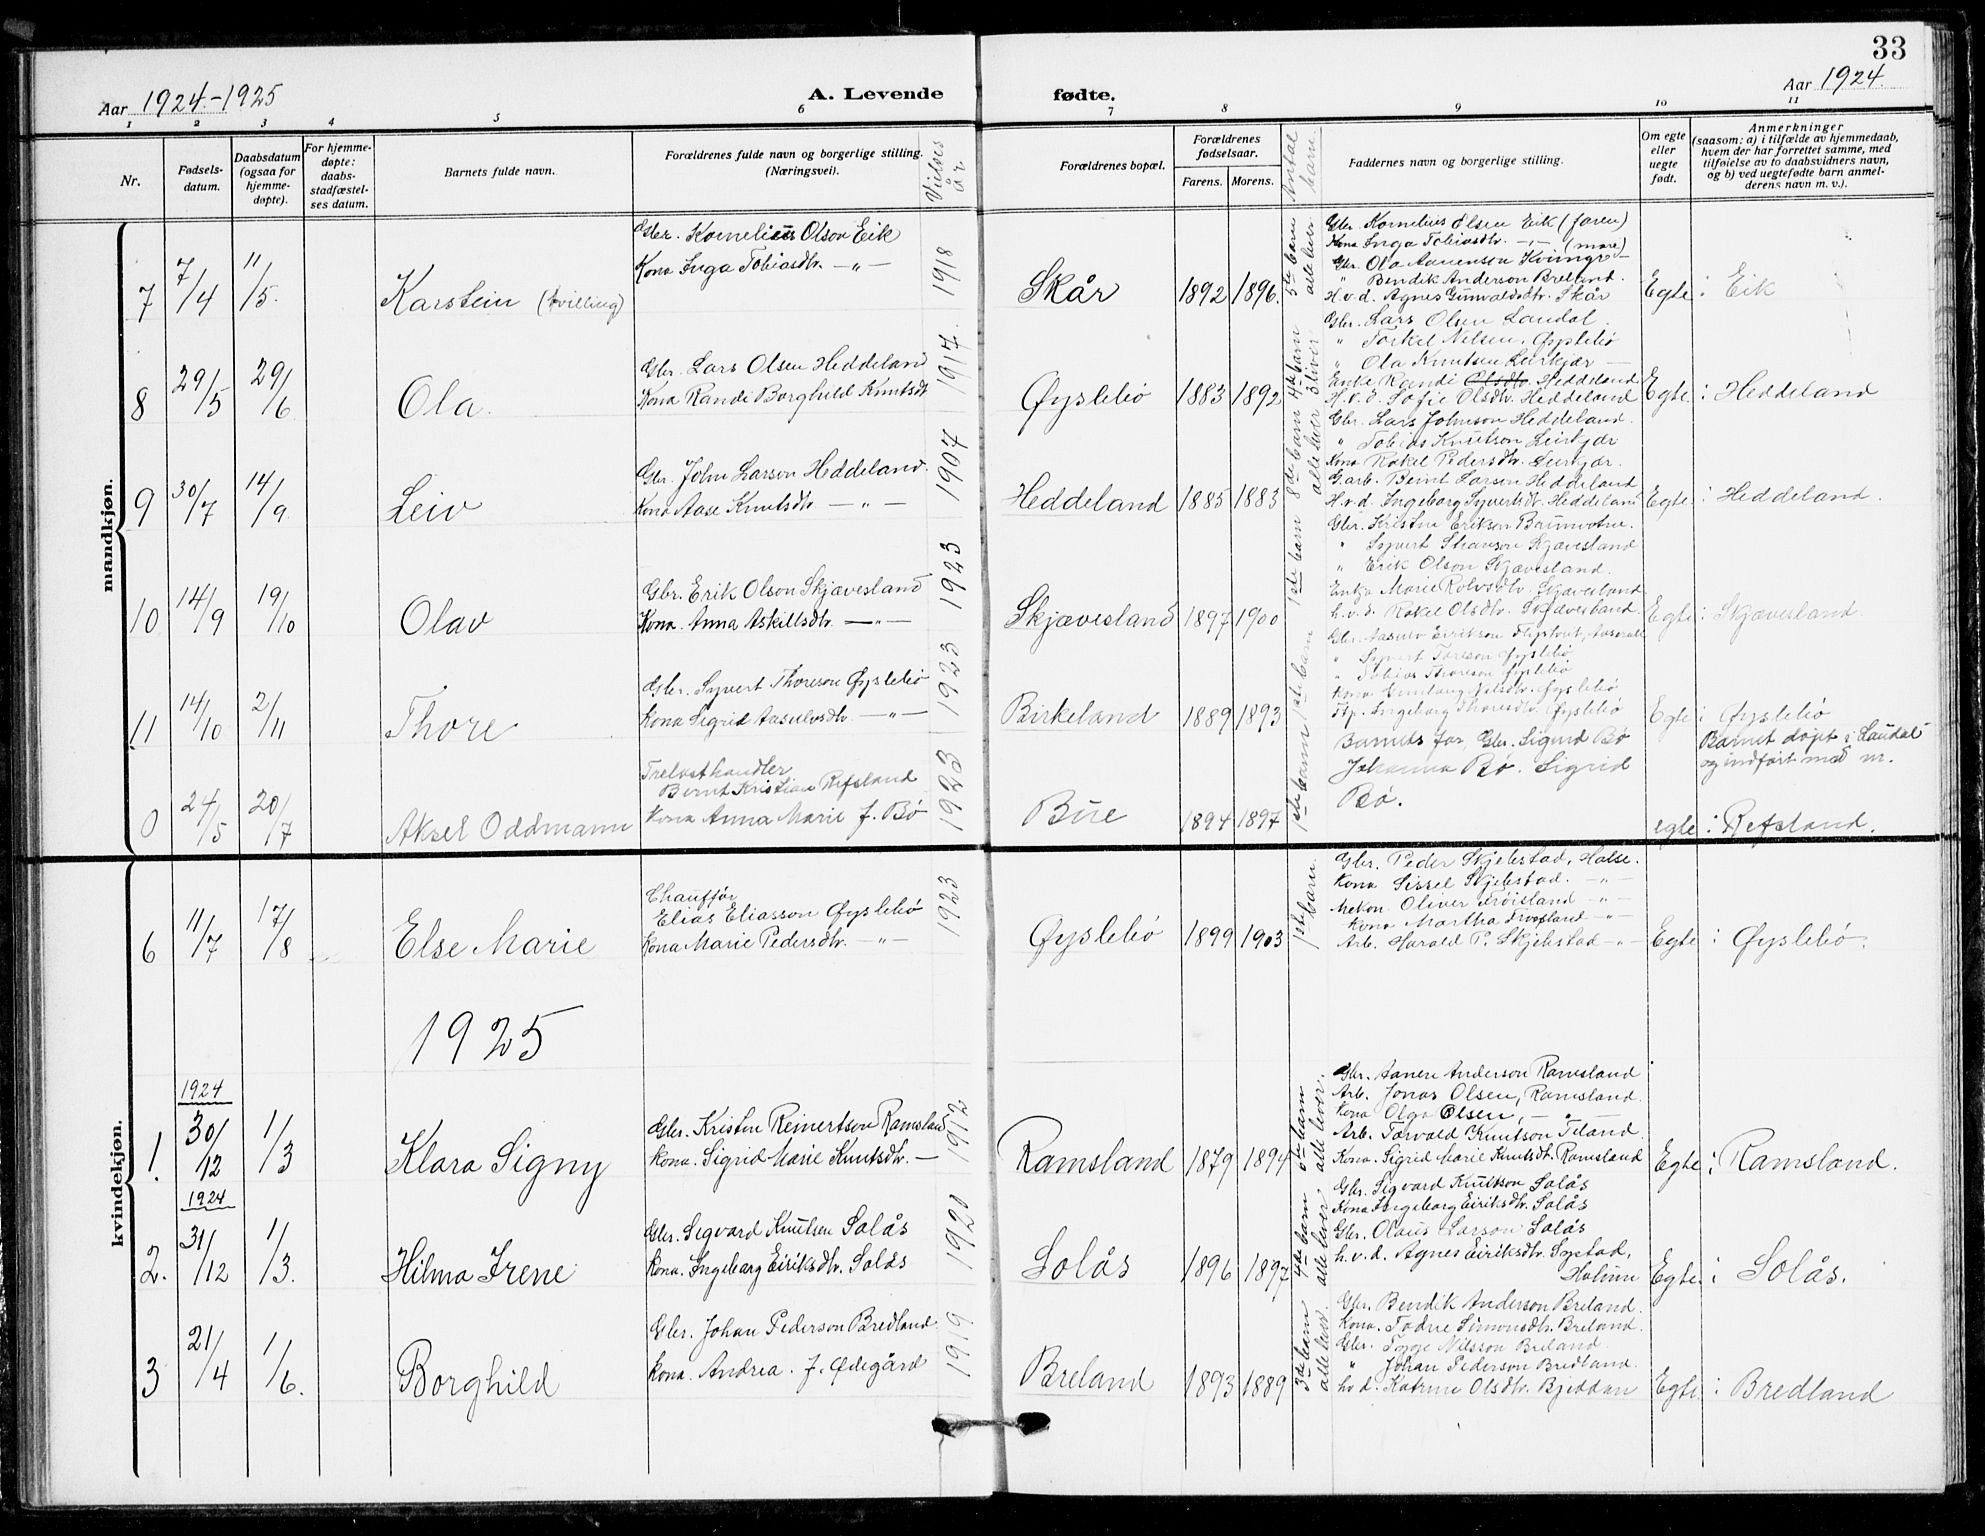 33
Aar 1924.-1925
A. Levende
fødte.
Aar 1924.
1 2 3 4 5 6 7 8 9 10 11
Nr.
Fødsels-
datum.
Daabsdatum
(ogsaa for
hjemme-
døpte).
For hjemme-
døpte:
daabs-
stadfæstel-
ses datum.
Barnets fulde navn.
Forældrenes fulde navn og borgerlige stilling.
(Næringsvei).
Vielses
år.
Forældrenes bopæl.
Forældrenes
fødselsaar.
Farens. Morens.
Antal
barn.
Faddernes navn og borgerlige stilling.
Om egte
eller
uegte
født.
Anmerkninger
(saasom: a) i tilfælde av hjemmedaab,
hvem der har forrettet samme, med
tilføielse av to daabsvidners navn,
og b) ved uegtefødte barn anmel-
derens navn m. v.).
mandkjøn.
7 7/4 11/5. Karstein (tvilling)
Gbr. Kornelius Olson Eik
Kona Inga Tobiasdtr. -"-
1918
Skår 1892 1896.
5te barn
alle lever
Gbr. Kornelius Olsen Eik (faren)
Kona Inga Tobiasdtr. -"- (more)
Gbr. Ola Aanensen
" Bendik Anderson Breland.
H.v.d. Agnes Gunvaldsdtr. Skår
Egte i Eik
8 29/5 29/6 Ola.
Gbr. Lars Olsen Heddeland
Kona Randi Borghild Knutsdt
1917.
Øyslebö 1883 1892
4de barn
3 lever
Gbr. Lars Olsen Laudal.
" Torkel Nilsen, Øyslebö
" Ola Knutsen Leirkjær
Enke Randi Olsdtr. Heddeland
H.v.d. Sofie Olsdtr. Heddeland
Egte i Heddeland
9 30/7 14/9 Leiv
Gbr. John Larson Heddeland.
Kona Aase Knutsdtr. -"-
1907
Heddeland 1885 1883
8de barn
alle lever
Gbr. Lars Johnson Heddeland.
" Tobias Knutson Leirkjær
Kona Rakel Pedersdtr. Leirkjær.
Garb. Bernt Larsen Heddeland
H.v.d. Ingeborg Syvertsdt. Heddeland
Egte i Heddeland.
10 14/9 19/10 Olav
Gbr. Erik Olson Skjævesland
Kona. Anna Askilsdtr. -"-
1923
Skjævesland 1897 1900
1ste barn
Gbr. Kristen Erikson
" Syvert Skjævesland
" Erik Olson Skjævesland.
Enkja Marie Rolvsdtr. Skjævesland
h.v.d. Rakel Olsdtr. Skjævesland.
Egte i Skjævesland.
11 14/10 2/11 Thore
Gbr. Syvert Thoreson Øyslebö
Kona Sigrid Aasulvsdtr. -"-
1923
Birkeland 1889 1893
1ste barn
Gbr. Aasulv Eirikson
" Syvert Toreson Øyslebö
" Tobias Thoreson Øyslebö
Kona Gunlaug Nilsdtr. Øyslebö
Ingeborg Thoresdtr. Øyslebö
Egte i Øyslebö
0 24/5 20/7 Aksel Oddmann
Trelasthandler
Bernt Kristian Refsland
Kona Anna Marie f. Bö
1923
Bue 1894 1897
1ste barn
Barnets far, Gbr. Sigurd Bö
Johanna Bö. Sigrid
Bö.
egte
Barnet døpt i Laudal
og indført med nr.
i Refsland.
kvindekjøn.
6 11/7 17/8 Else Marie
Chauffør
Elias Eliasson Øyslebö
Kona Marie Pedersdtr. -"-
1923
Øyslebö 1899 1903
1ste barn.
Gbr. Peder Skjebstad, Halse.
Kona Sissel Skjebstad. -"-
Mekan. Oliver Tröisland -"-
Kona Martha Troysland -"-
Arb. Harald P. Skjebstad -"-
Egte i Øyslebö.
1925
1924
1. 30/12 1/3 Klara Signy
Gbr. Kristen Reinertson Ramsland
Kona. Sigrid Marie Knutsdtr. -
1912
Ramsland 1879 1894
5te barn
alle lever.
Gbr. Aanen Anderson Ramsland
Arb. Jonas Olsen, Ramsland.
Kona Olga Olsen, - " -
Arb. Torvald Knutson
Kona. Sigrid Marie Knutsdtr. Ramsland
Egte i Ramsland.
1924
2. 31/12 1/3. Hilma Irene
Gbr. Segvard Knutsen Solås
Kona. Ingeborg Eiriksdtr. Solås
1920
Solås 1896 1897
4de barn
alle lever
Gbr. Sigvard Knutson Solås
Kona Ingeborg Eiriksdtr. Solås
Gbr. Olaus Larson Solås
h.v.d. Agnes Eiriksdtr. Systad,
Holum
Egte i Solås.
3 21/4 1/6. Borghild
Gbr. Johan Pederson Bredland
Kona. Andrea. f. Ødegård
1919
Breland 1893 1889
3de barn
alle lever.
Gbr. Bendik Anderson Breland.
Kona. Todne Simonsdtr. Breland.
Gbr. Tygje Nilsson Breland.
" Johan Pederson Bredland.
hv d. Katrine Olsdtr. Bjeddan
Egte i Bredland